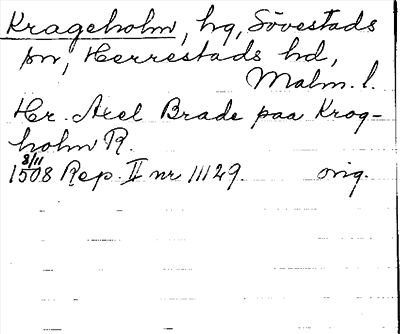 Krageholm, hg, Sövestads
sn, Herrestads hd,
Malm. l.
Hr. Axel Brade paa Krog-
holm R.
8/11
1508 Rep. II nr 11129. orig.